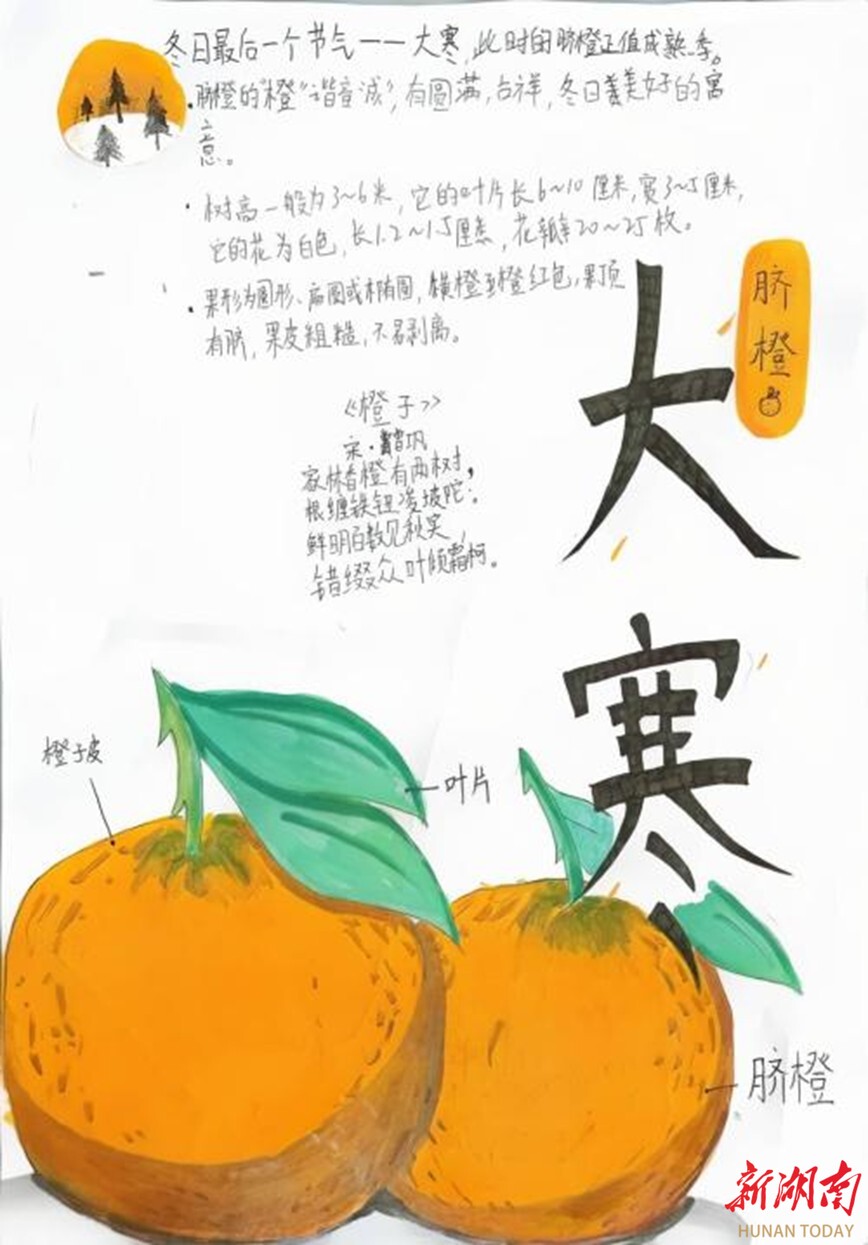 冬日最后一个节气——大寒,此时的脐橙正值成熟季。
·脐橙的"橙"谐音诚",有圆满,吉祥,冬日美好的寓
意。
·树高一般为3~6米,它的叶片长6~10厘米,宽3~5厘米,
它的花为白色,长1.2~1.5厘米,花瓣20~25枚。
·果形为圆形、扁圆或椭圆,橙至橙红色,果顶
有脐,果皮粗糙,不易剥离。
《橙子》
宋·曾巩
家林香橙有两树,
根缠铁钮凌坡陀;
鲜明百数见秋实,
错缀众叶倾霜柯。
脐橙
大寒
橙子皮
叶片
脐橙
新湖南
HUNAN TODAY